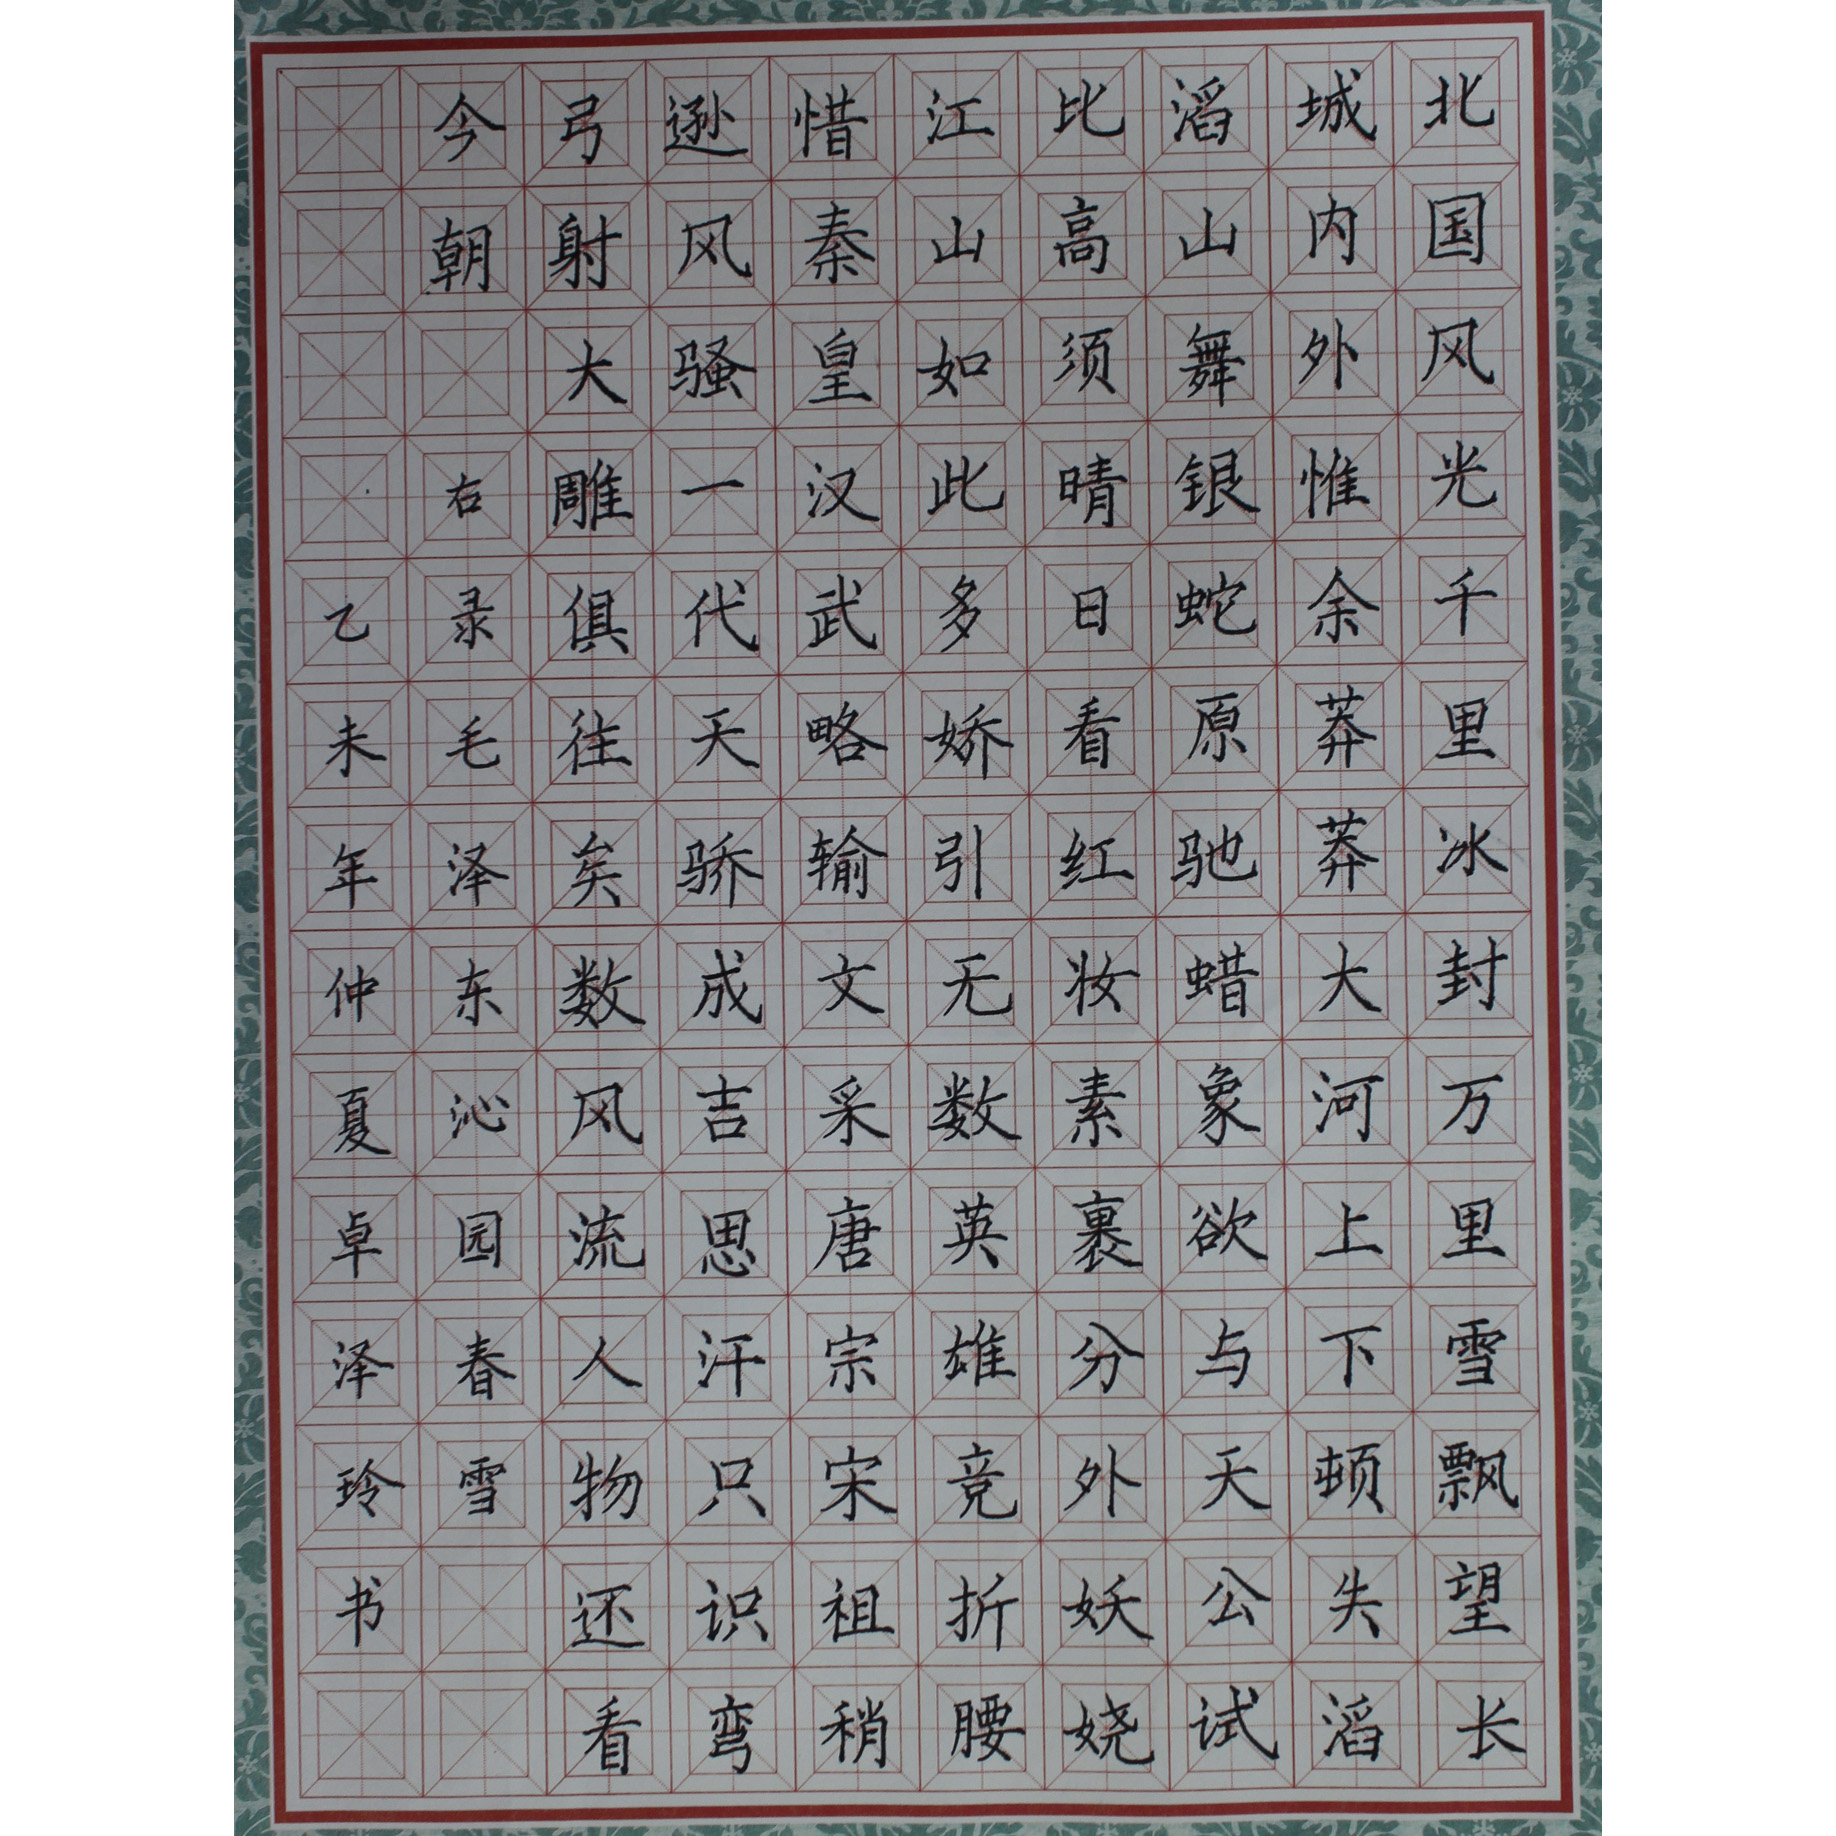 北国风光千里冰封万里雪飘望长
城内外惟余莽莽大河上下顿失滔
滔山舞银蛇原驰蜡象欲与天公试
比高须晴日看红妆素裹分外妖娆
江山如此多娇引无数英雄竞折腰
惜秦皇汉武略输文采唐宗宋祖稍
逊风骚一代天骄成吉思汗只识弯
弓射大雕俱往矣数风流人物还看
今朝 右录毛泽东沁园春雪
乙未年仲夏卓泽玲书